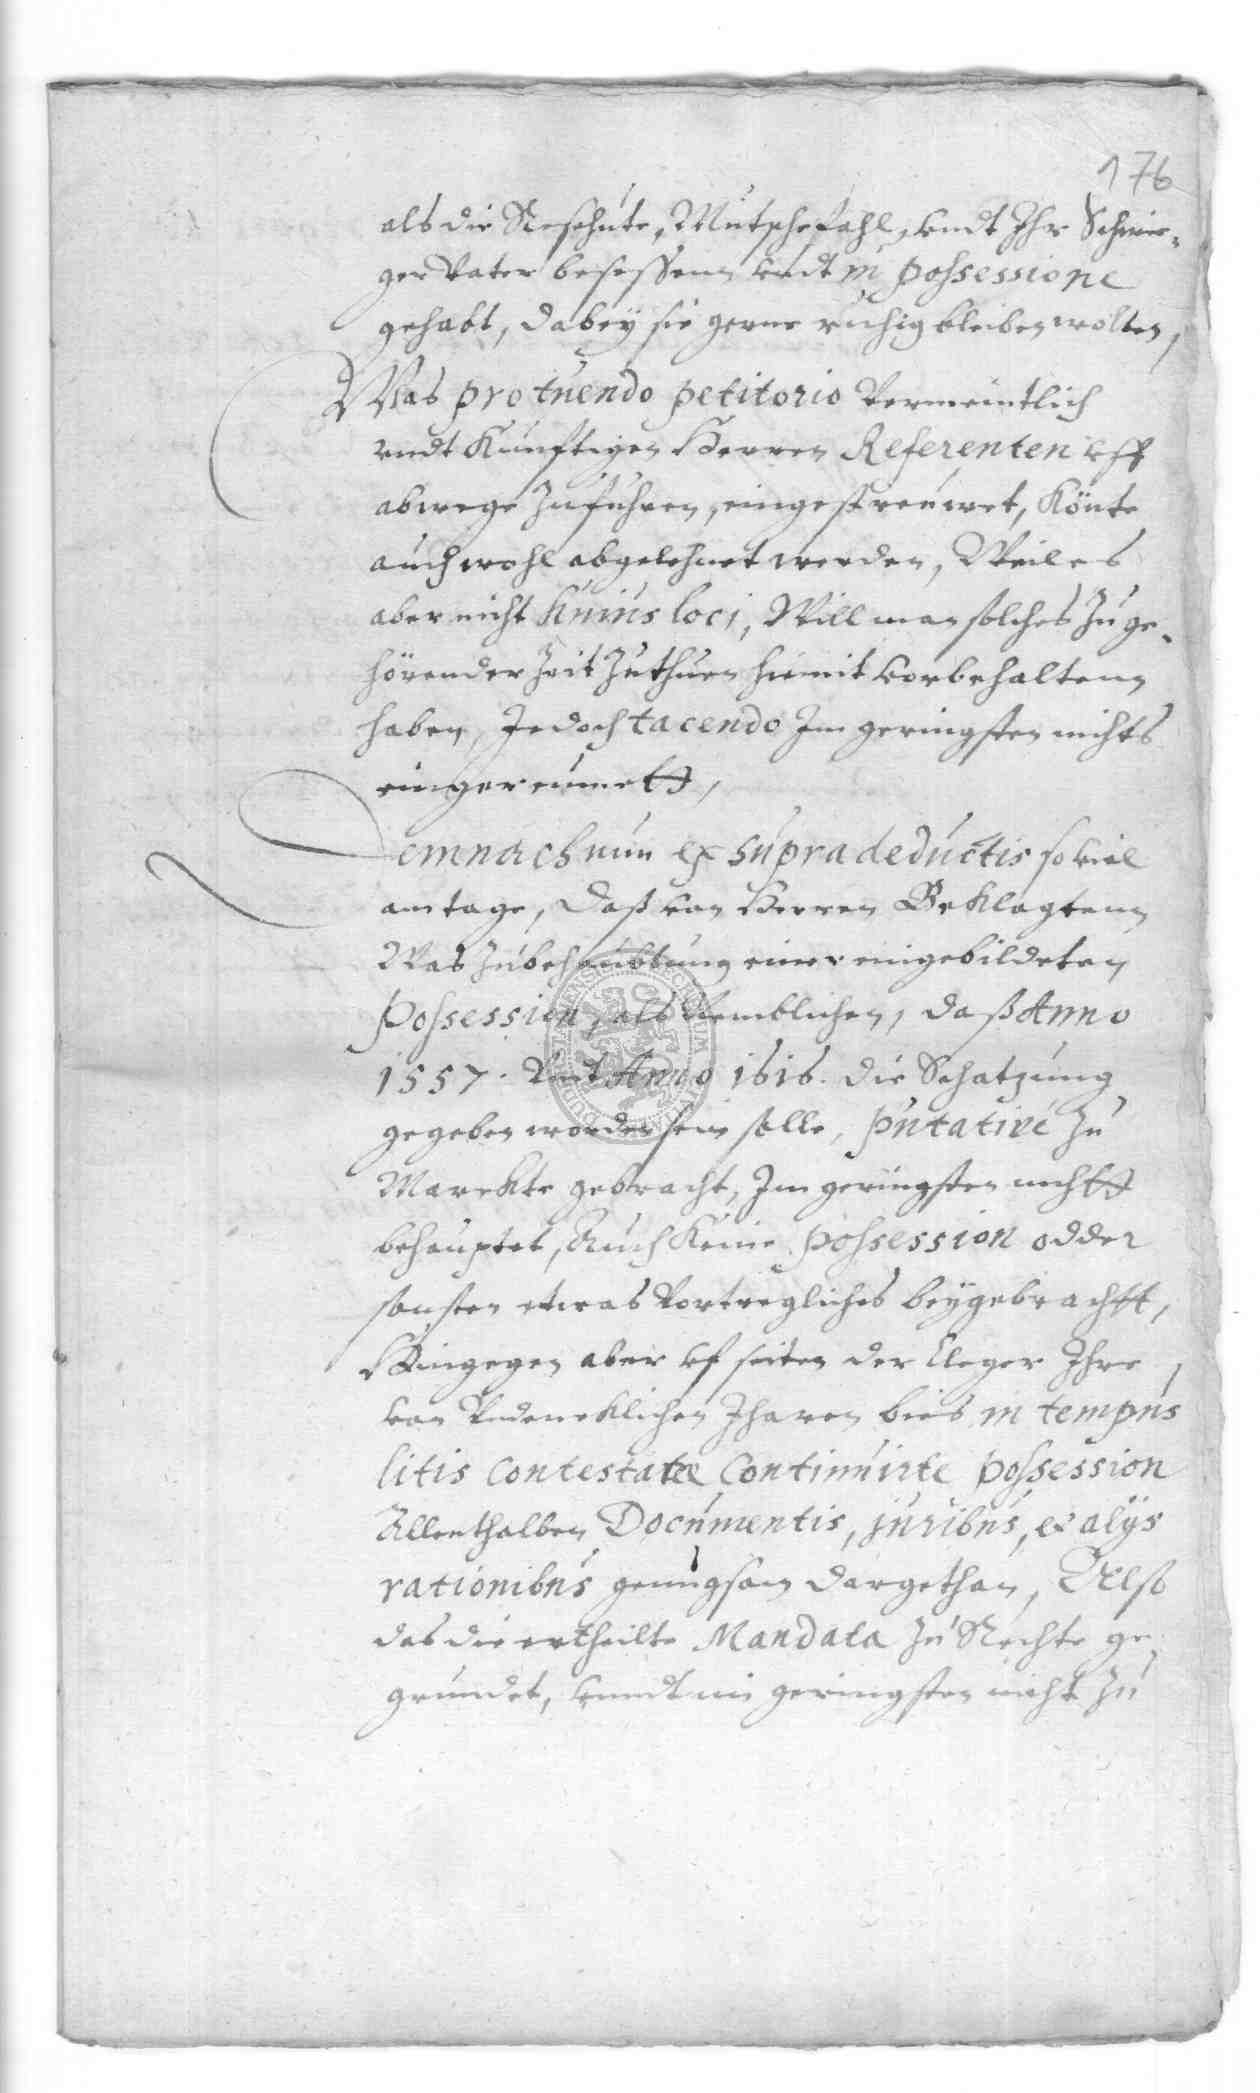 176
als die Reschute, Mutschefahl, vndt Ihr Schwie-
ger Vater besessenn vndt in possessione
gehabt, dabeÿ sie gerne ruhig bleiben wolten,
Was pro tuendo petitorio Vermeintlich
vndt Kunftigen Herren Referenten vff
abwege Zufuhren, eingestreuwet, Könte
auch wohl abgelehnet werden, Weil es
aber nicht huius loci, Will man solches Zu ge-
hörender Zeit Zuthuen hiemit vorbehaltenn
haben, Jedoch tacendo Im geringsten nichts
eingereumett,
Demnach nun ex supra deductis so viel
am tage, daß von Herren Beklagtenn
Was Zubehaubtung einer eingebildeten
Possession, als Nemblichen, daß Anno
1557. Vndt Anno 1616. die Schatzung
gegeben worden sein solle, putativé Zu
Marckte gebracht, Im geringsten nichtt
behauptet, Auch Keine possession odder
sonsten etwas Vortregliches beÿgebrachtt,
Hingegen aber vf seiten der Cleger Ihre,
von Vndencklichen Iharen bies in tempus
litis contestatæ Continuirte possession
Allenthalben Documentis, juribus, & alÿs
rationibus genugsam dargethan, Also
das die ertheilte Mandata Zu Rechte ge-
grundet, vnndt im geringsten nicht Zu